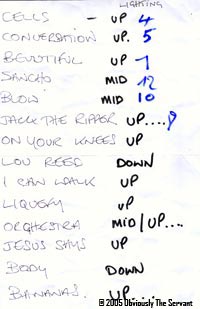 LIGHTING
CELLS - UP 4
CONVERSATION UP. 5
BEAUTIFUL UP 1
SANCHO MID 12
BLOW MID 10
JACK THE RIPPER UP....
ON YOUR KNEES UP
LOU REED DOWN
I CAN WALK UP
LIQUEFY UP
ORCHESTRA MID/UP....
JESUS SAYS UP
BODY DOWN
BANANAS. UP....
© 2005 Obviously The Servant